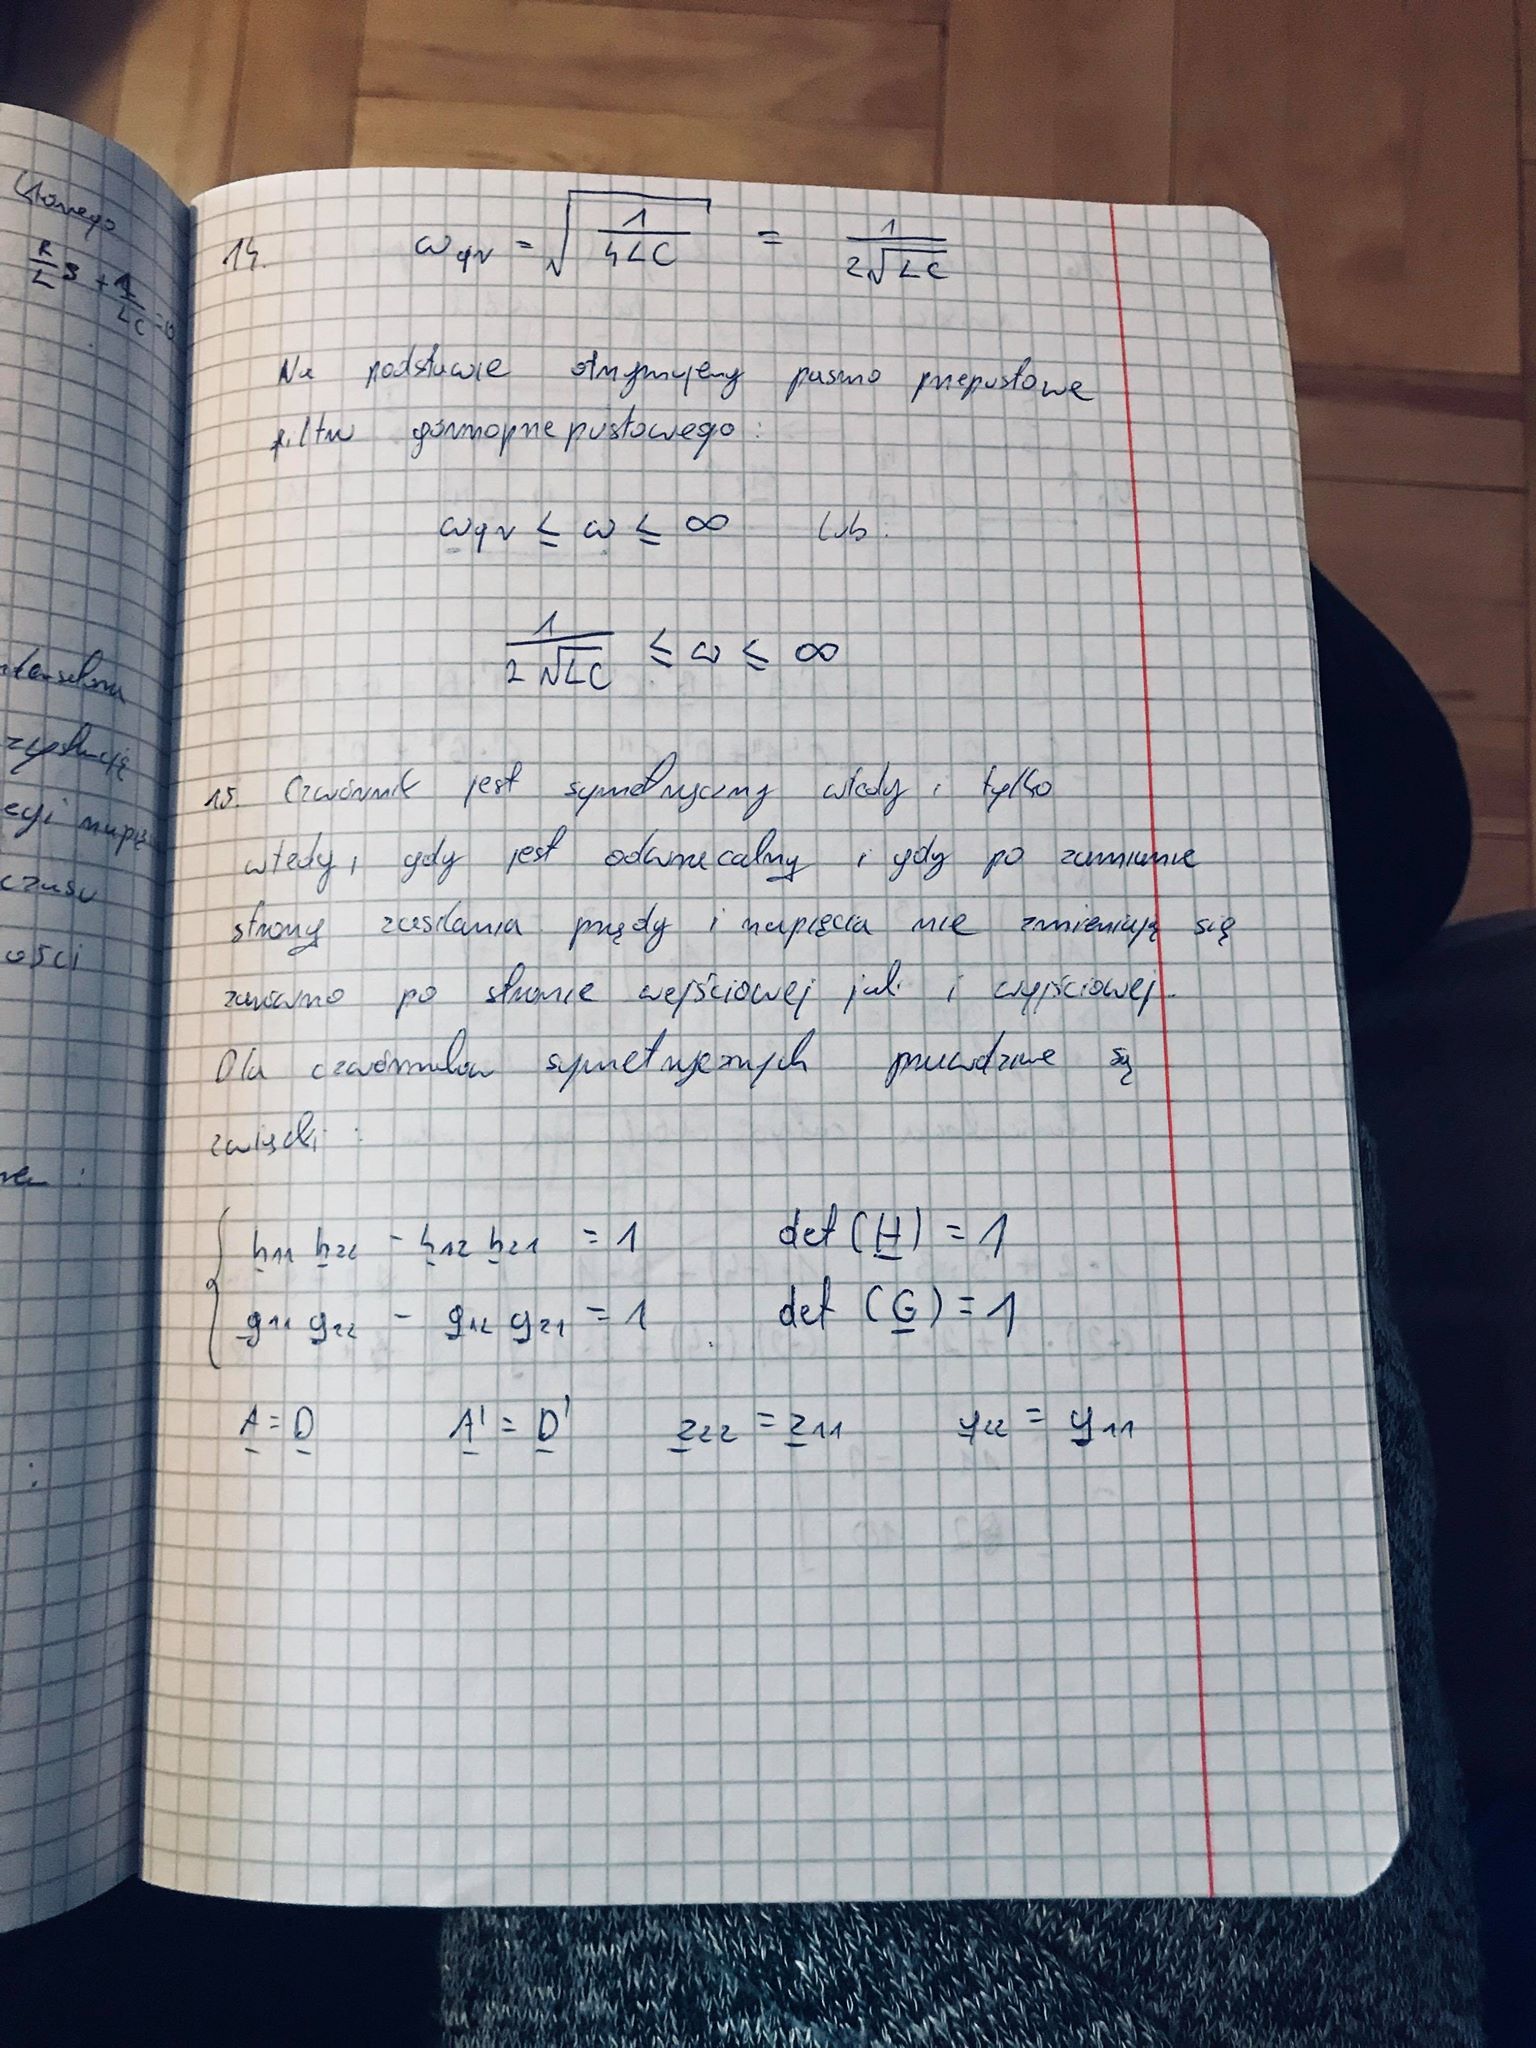 14. ω_gr = √(1/(4LC)) = 1/(2√(LC))
Na podstawie otrzymujemy pasmo przepustowe
filtru górnoprzepustowego:
ω_gr ≤ ω ≤ ∞ lub.
1/(2√(LC)) ≤ ω ≤ ∞
15. Czwórnik jest symetryczny wtedy i tylko
wtedy, gdy jest odwracalny i gdy po zamianie
strony zasilania prądy i napięcia nie zmieniają się
zarówno po stronie wejściowej jak i wyjściowej.
Dla czwórników symetrycznych prawdziwe są
związki:
h₁₁ h₂₂ - h₁₂ h₂₁ = 1 det (H) = 1
g₁₁ g₂₂ - g₁₂ g₂₁ = 1 det (G) = 1
A = D A' = D' z₂₂ = z₁₁ y₂₂ = y₁₁
R/L s + 1/LC = 0
czasu
ości